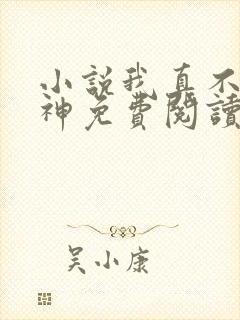 小說我真不
神免費閱讀
吴小康